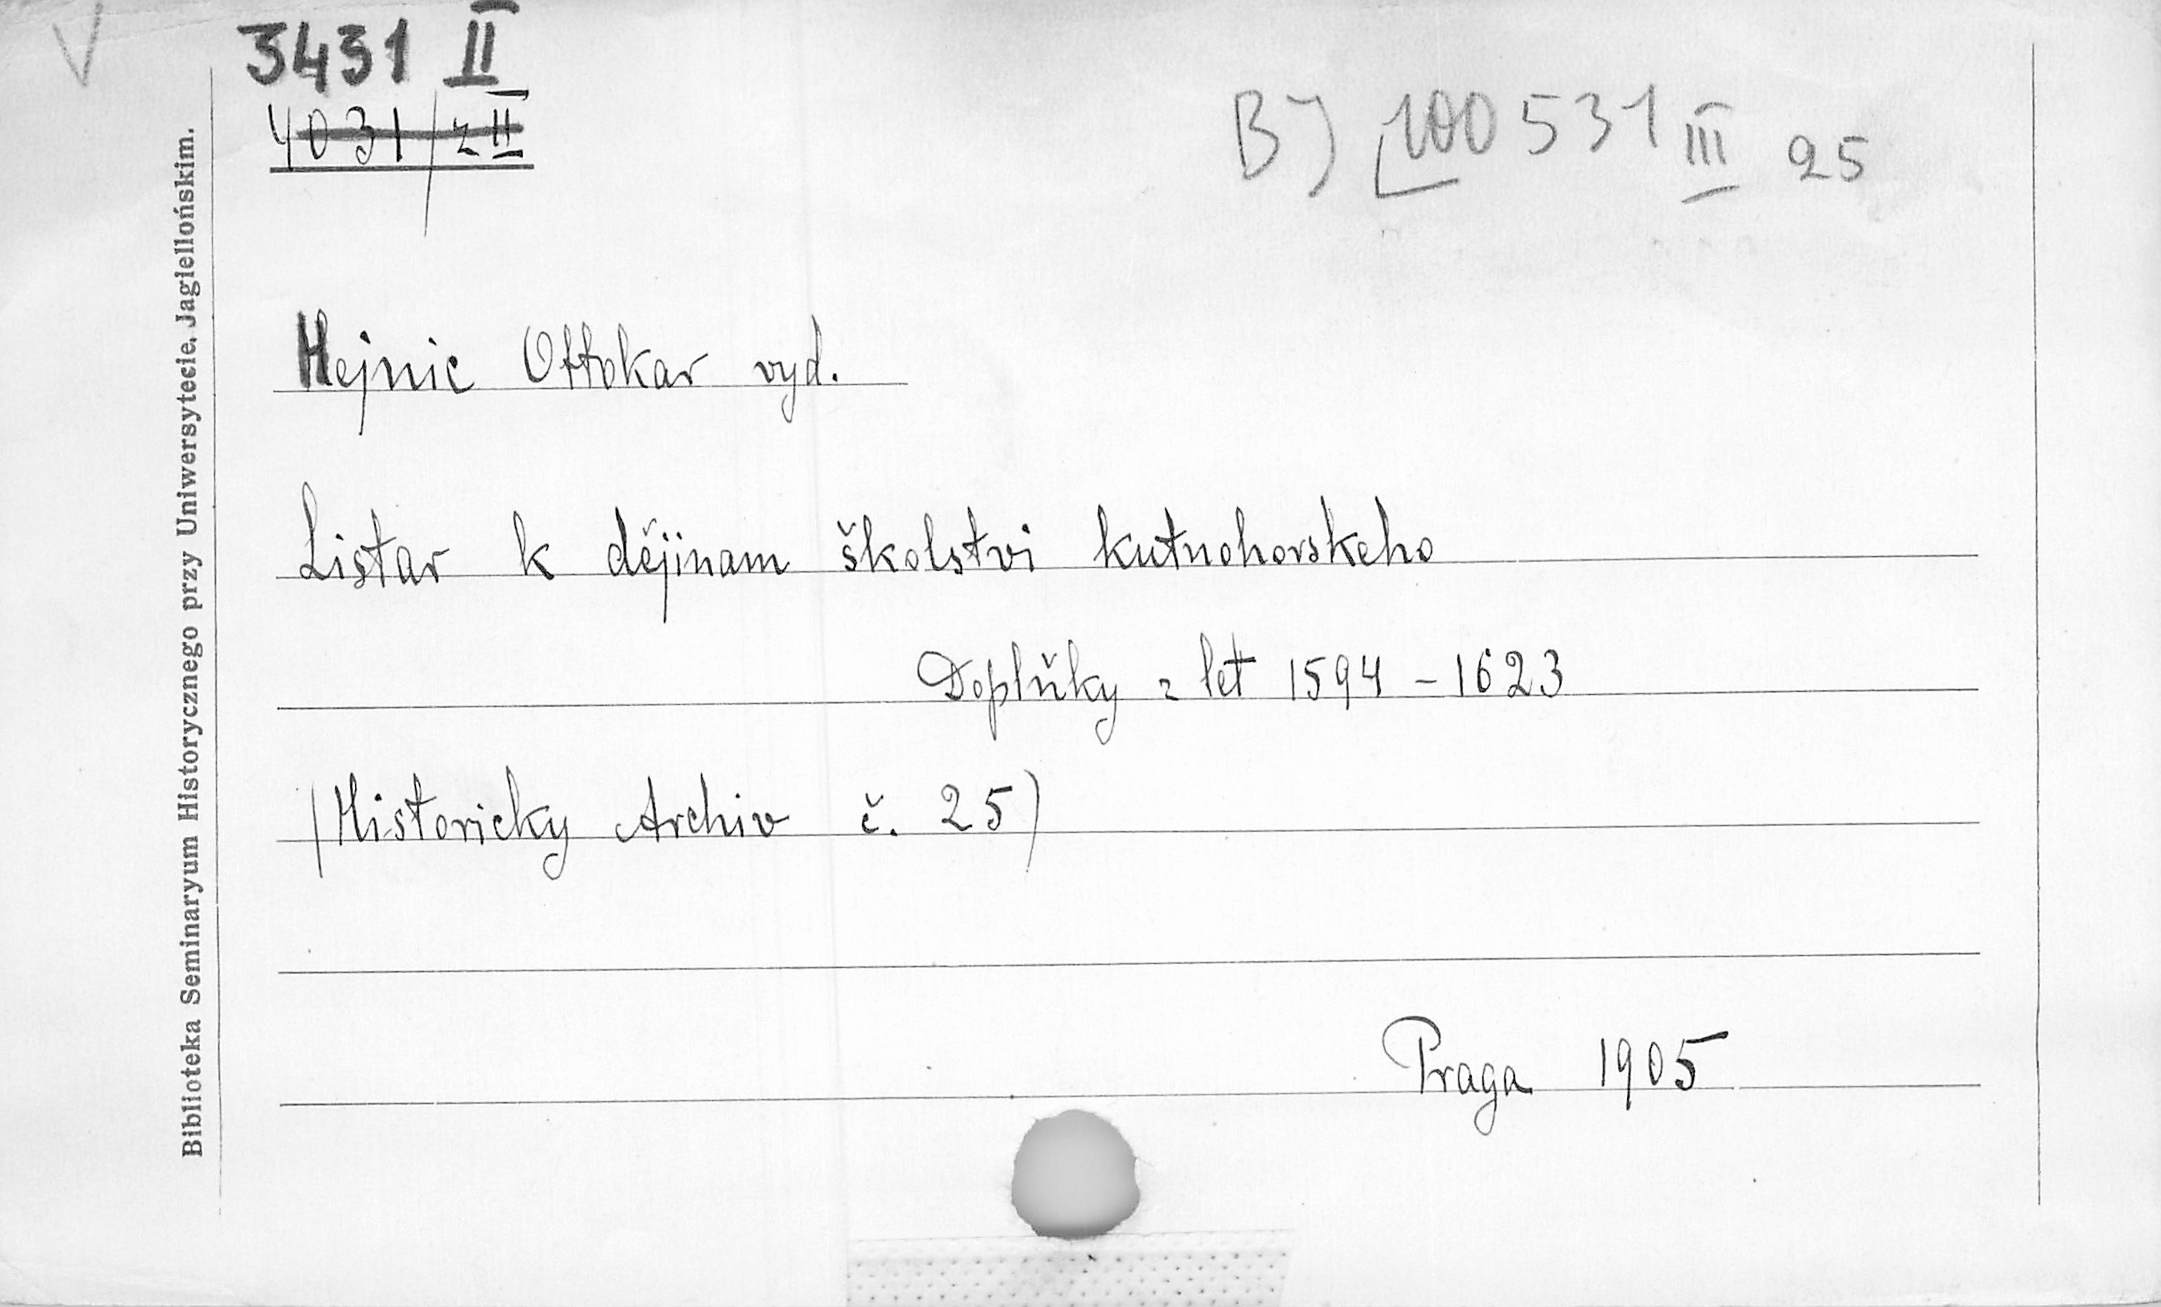 V
3431 II
4031/z II
B) 100531 III 25
Hejnic Ottokar vyd.
Listar k dějinam školstvi kutnohorskeho
Doplňky z let 1594 - 1623
(Historicky Archiv č. 25)
Praga 1905
Biblioteka Seminaryum Historycznego przy Uniwersytecie Jagiellońskim.